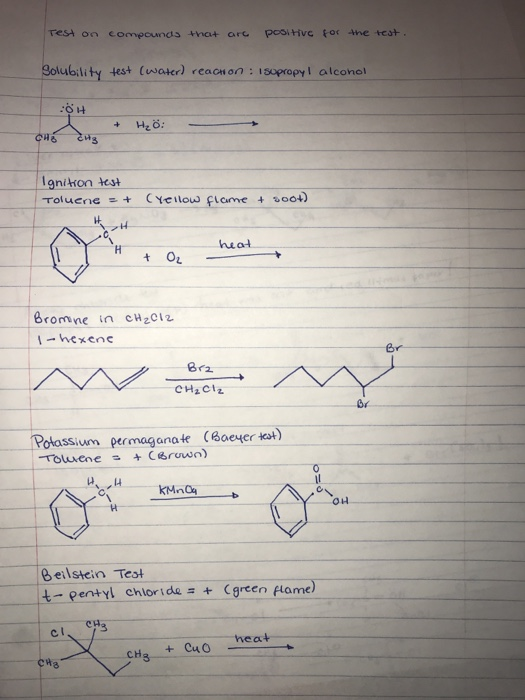 Test on compounds that are positive for the test.
Solubility test (water) reaction : isopropyl alcohol
:ÖH
CH3 CH3 + H2Ö:
Ignition test
Toluene = + (Yellow flame + soot)
H
C-H
H
+ O2 heat
Bromine in CH2Cl2
1-hexene
Br
Br2
CH2Cl2
Br
Potassium permaganate (Baeyer test)
Toluene = + (Brown)
H H O
C KMnO4 C
H OH
Beilstein Test
t-pentyl chloride = + (green flame)
Cl CH3
CH3 CH3 + CuO heat